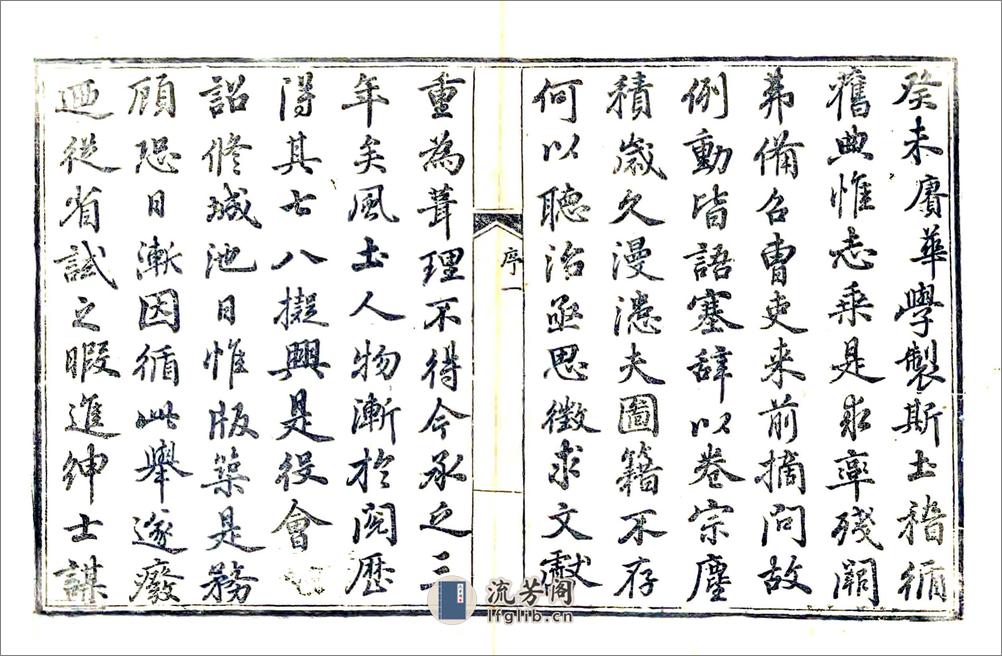 癸未賡華學製斯土稽循
舊典惟志乘是求率殘闕
弗備召曹吏来前摘問故
例動皆語塞辭以卷宗塵
積歲久漫漶夫圖籍不存
何以聽治亟思徵求文獻
序一
重為葺理不得今承乏三
年矣風土人物漸於閱歷
得其七八擬興是役會
詔修城池日惟版築是務
顧恐日漸因循此舉遂廢
迺從省試之暇進紳士謀
流芳阁
lfglib.cn